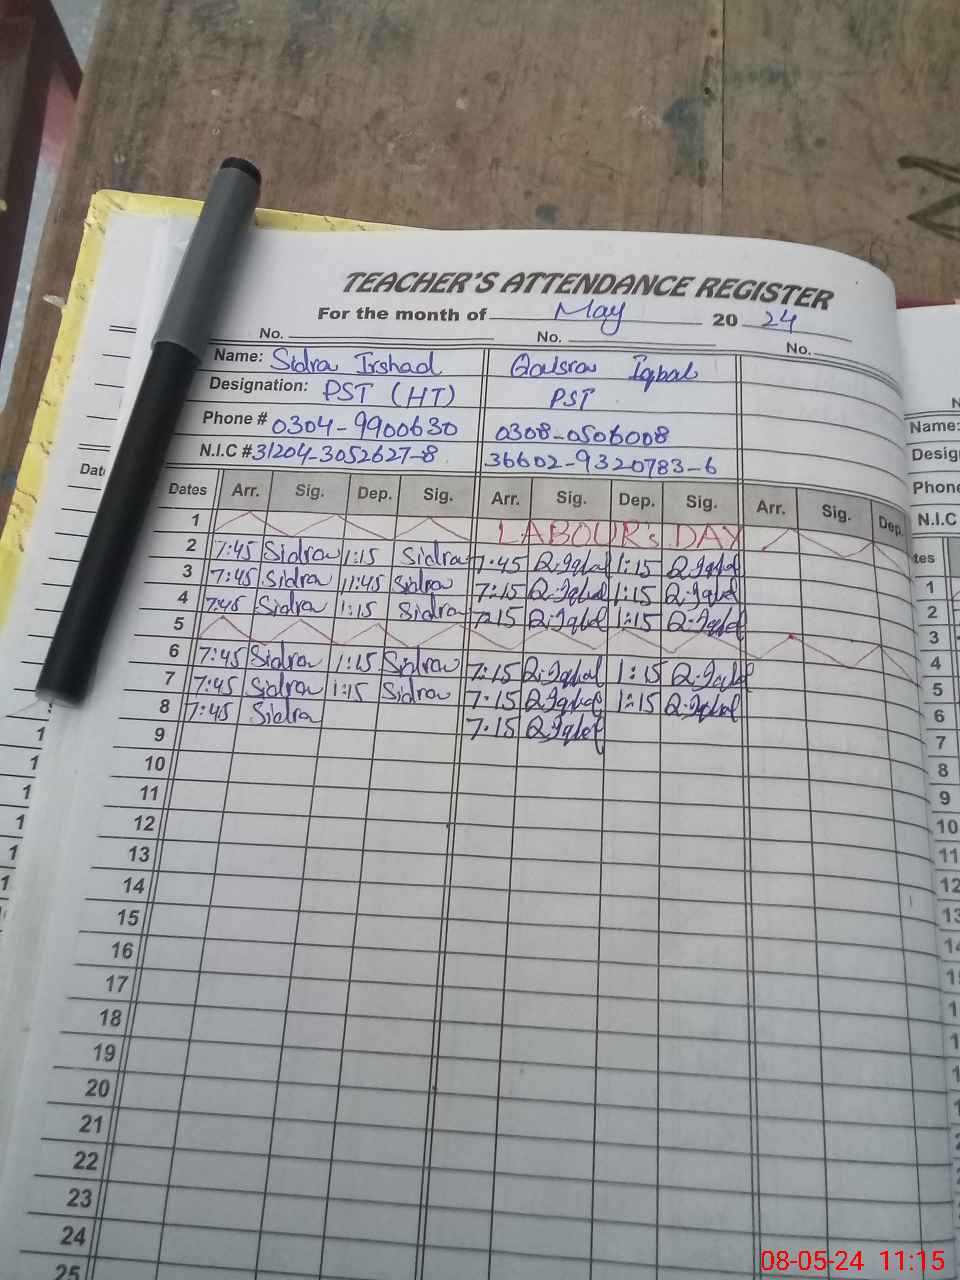 TEACHER'S ATTENDANCE REGISTER
For the month of May 20 24
No. No. No.
Name: Sidra Irshad Qalsra Iqbal
Designation: PST (HT) PST
Phone # 0304-9900630 0308-0506008
N.I.C # 31204-3052627-8 36602-9320783-6
Dates Arr. Sig. Dep. Sig. Arr. Sig. Dep. Sig. Arr. Sig. Dep.
1 LABOUR's DAY
2 7:45 Sidra 1:15 Sidra 7:45 Q.Iqbal 1:15 Q.Iqbal
3 7:45 Sidra 11:45 Sidra 7:15 Q.Iqbal 1:15 Q.Iqbal
4 7:45 Sidra 1:15 Sidra 7:15 Q.Iqbal 1:15 Q.Iqbal
5
6 7:45 Sidra 1:15 Sidra 7:15 Q.Iqbal 1:15 Q.Iqbal
7 7:45 Sidra 1:15 Sidra 7:15 Q.Iqbal 1:15 Q.Iqbal
8 7:45 Sidra 7:15 Q.Iqbal
9
10
11
12
13
14
15
16
17
18
19
20
21
22
23
24
25
Name:
Phone
N.I.C
1
2
3
4
5
6
7
8
9
10
11
12
08-05-24 11:15